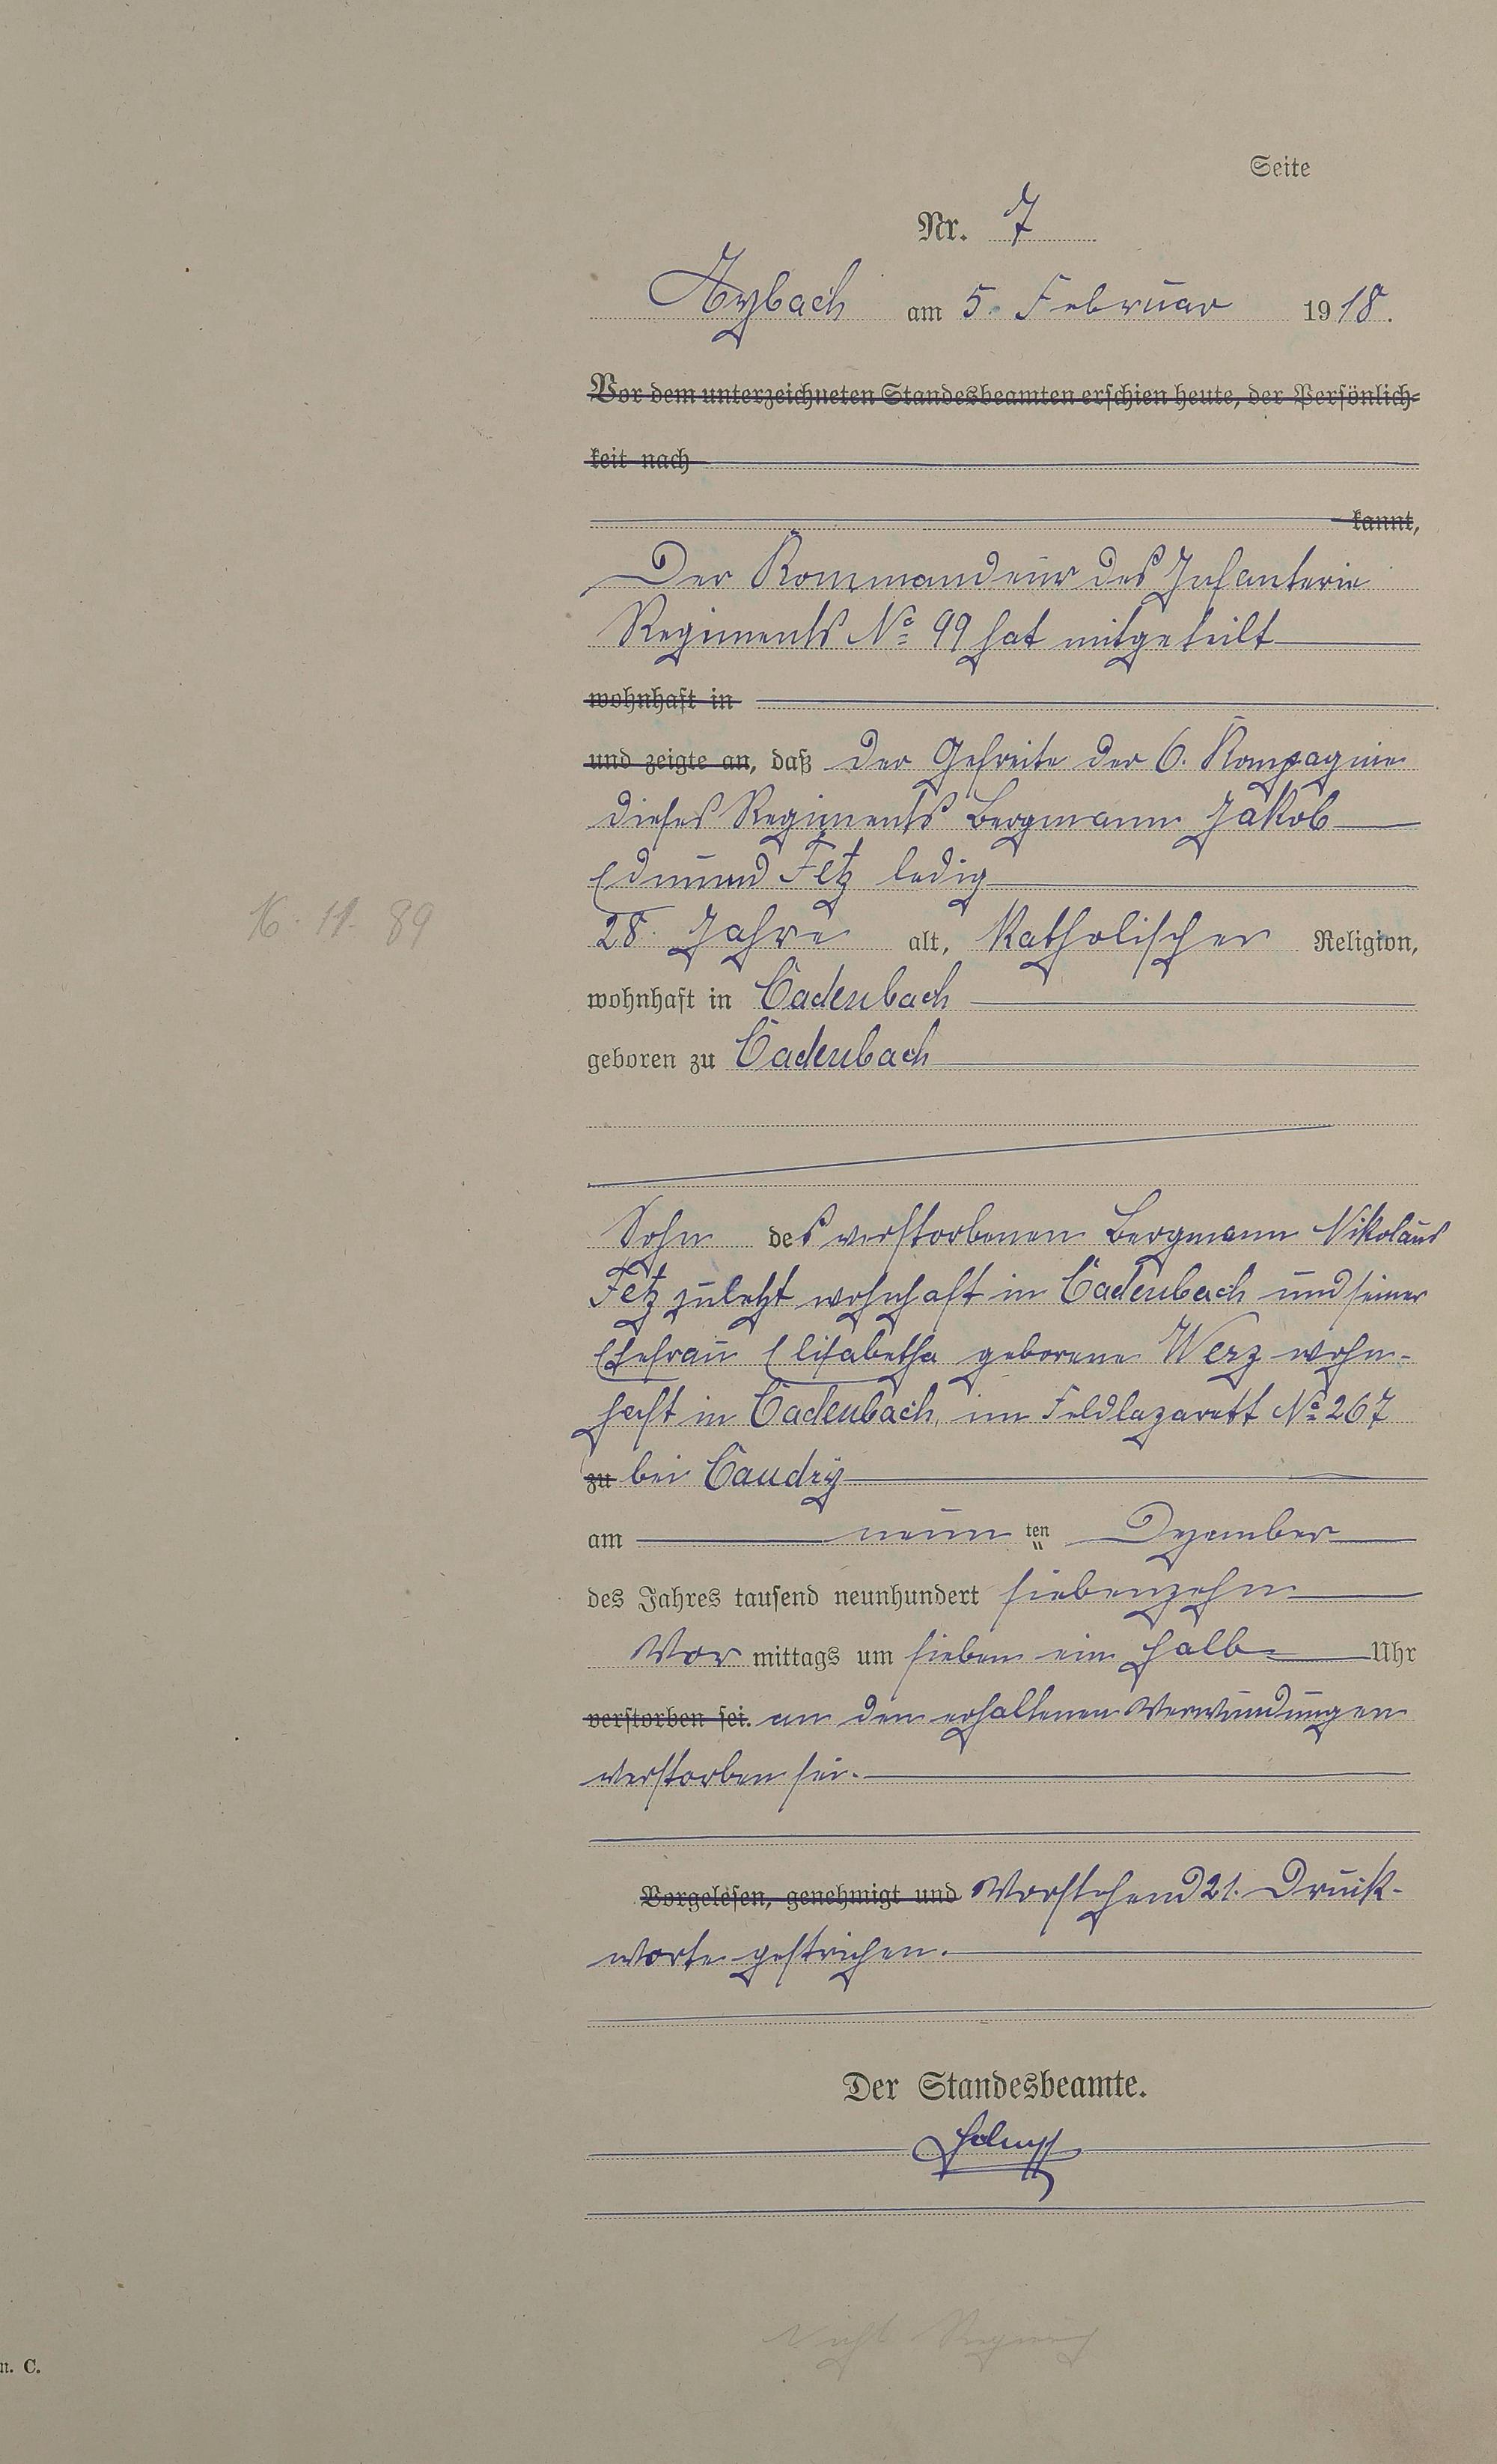 Seite
Nr. 7
Arzbach am 5. Februar 1918.
Vor dem unterzeichneten Standesbeamten erschien heute, der Persönlich-
keit nach
kannt,
Der Kommandeur des Infanterie
Regiments No 99 hat mitgeteilt
wohnhaft in
und zeigte an, daß der Gefreite der 6. Kompagnie
dieses Regiments Bergmann Jakob
Edmund Fetz ledig
16. 11. 89
28 Jahre alt, katholischer Religion,
wohnhaft in Cadenbach
geboren zu Cadenbach
Sohn des verstorbenen Bergmann Nikolaus
Fetz zuletzt wohnhaft in Cadenbach und seiner
Ehefrau Elisabetha geborene Werz wohn-
haft in Cadenbach, im Feldlazarett No 267
zu bei Caudry
am neun ten Dezember
des Jahres tausend neunhundert siebenzehn
Vor mittags um sieben ein halb Uhr
verstorben sei. an den erhaltenen Verwundungen
verstorben sei.
Vorgelesen, genehmigt und Vorstehend 21. Druck-
worte gestrichen.
Der Standesbeamte.
Nicht
n. C.